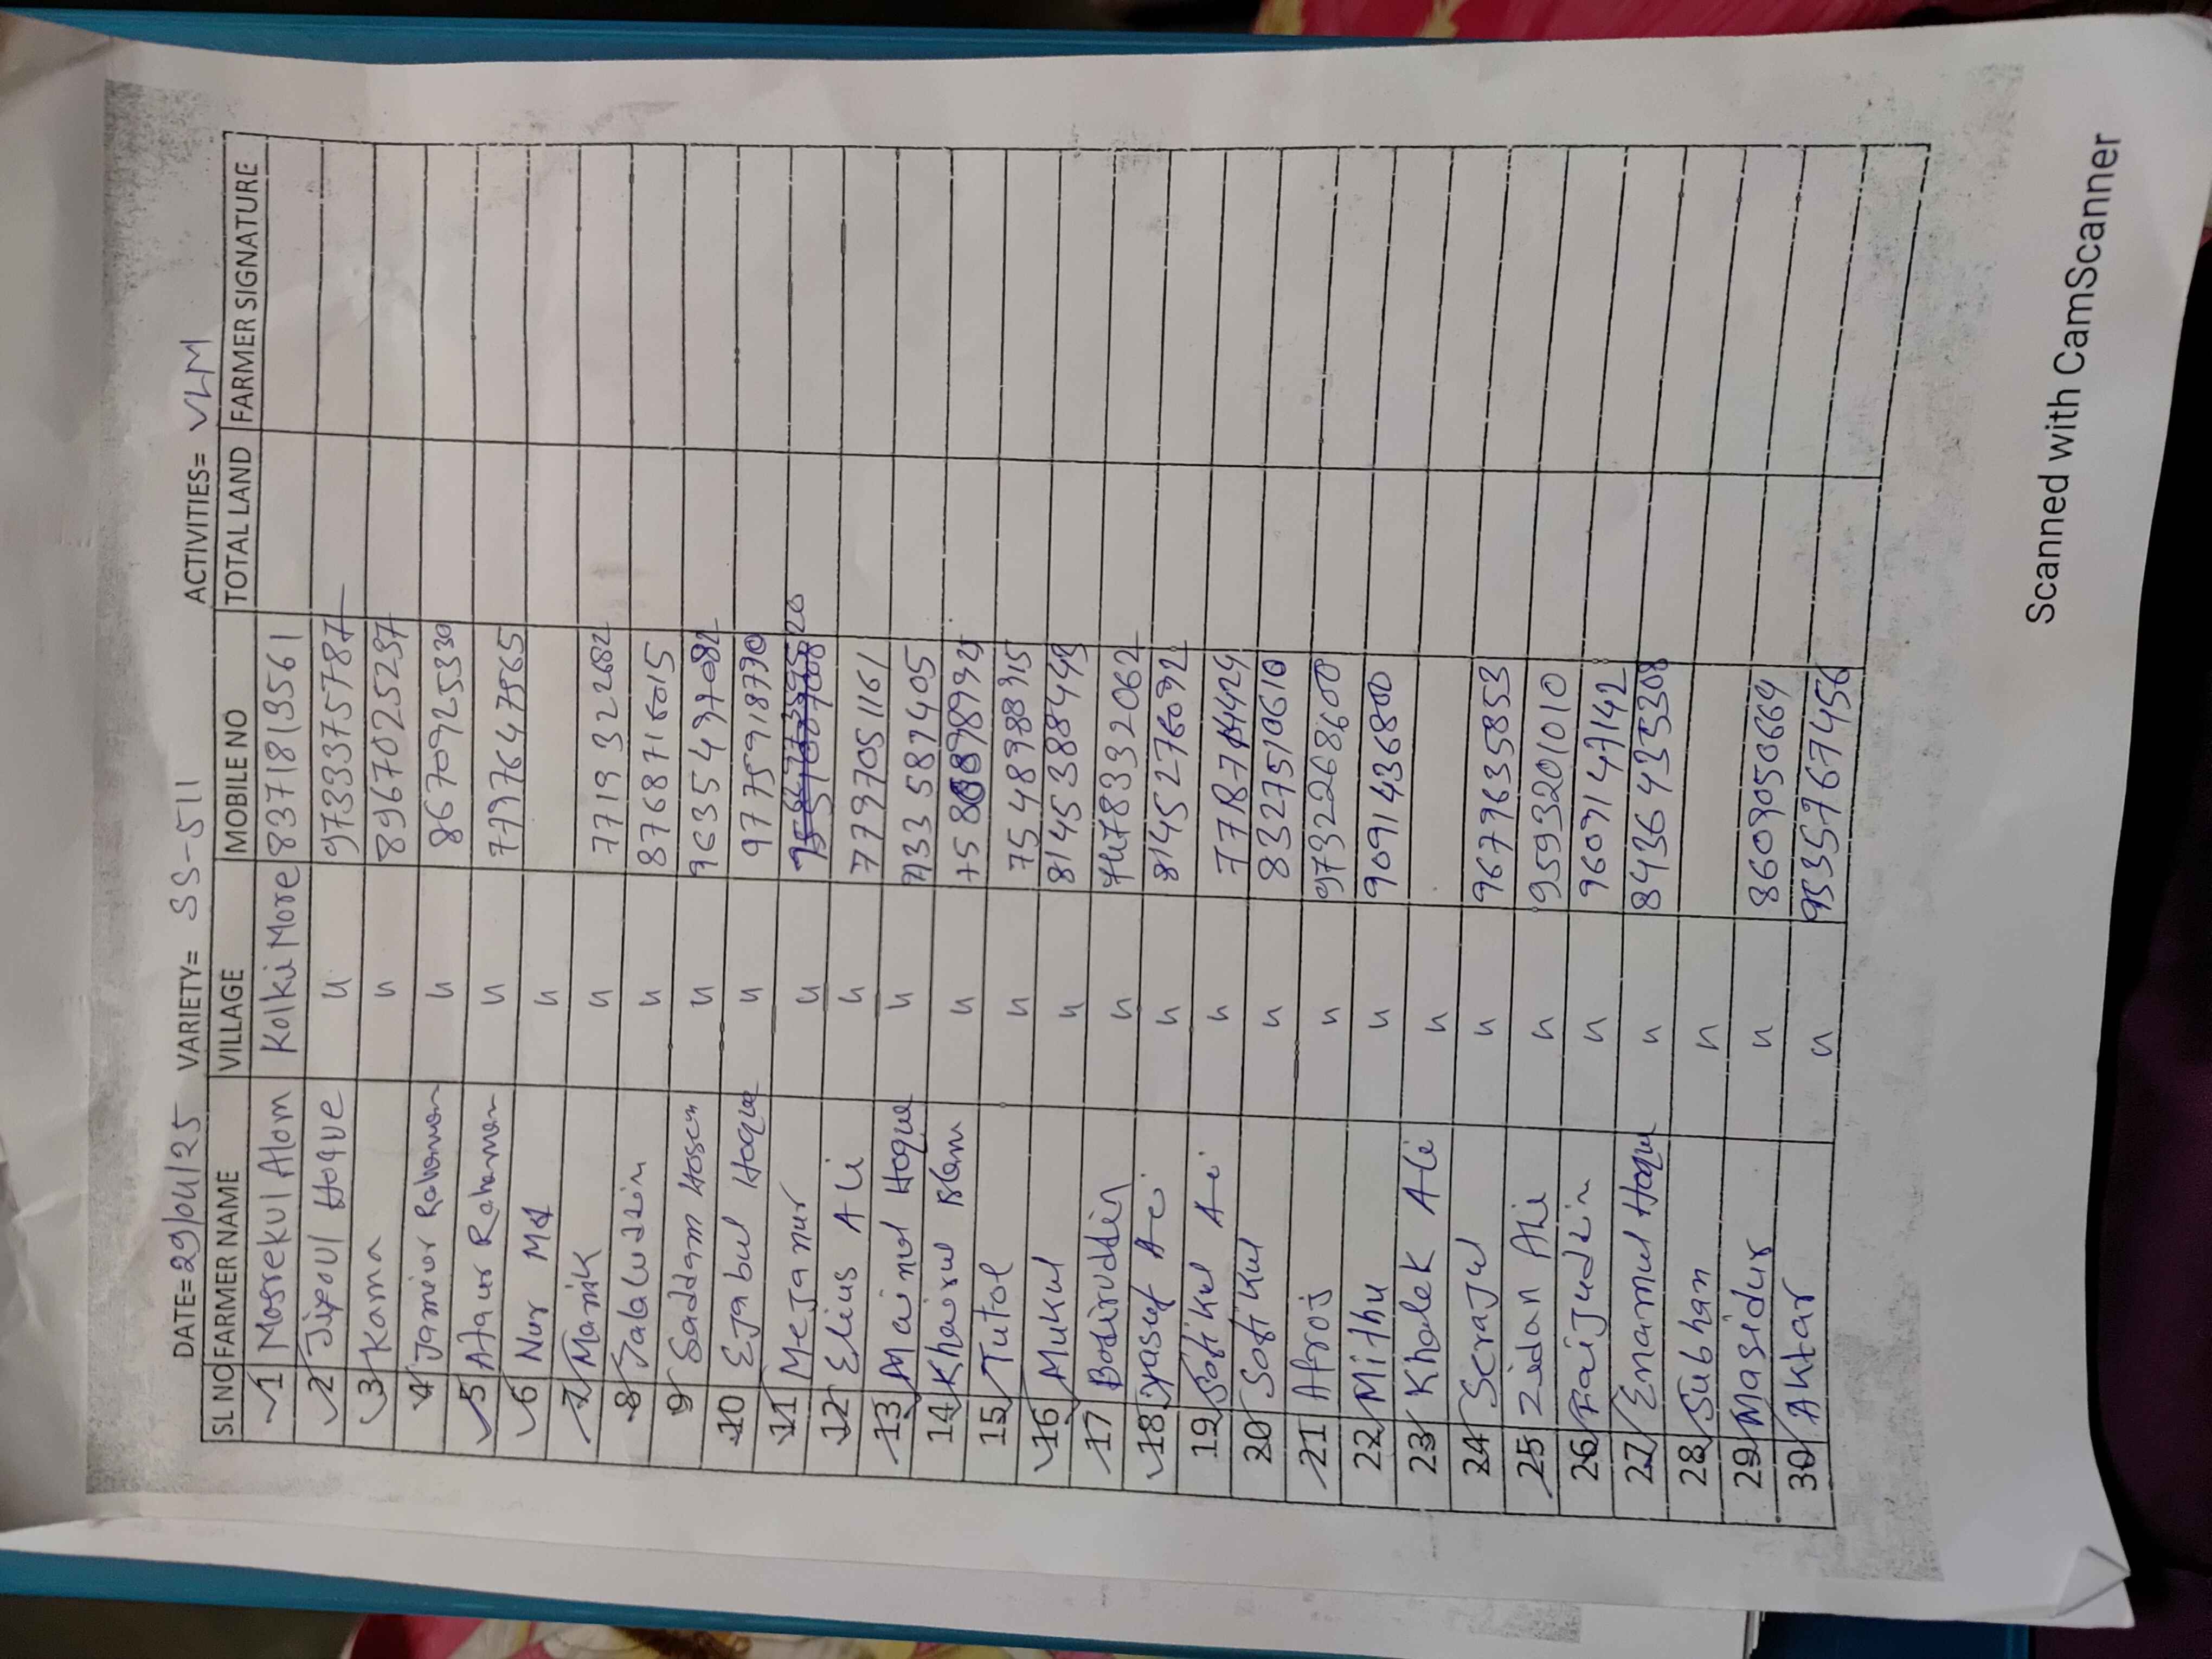 DATE= 29/04/25 VARIETY= SS-511 ACTIVITIES= VLM
SL NO FARMER NAME VILLAGE MOBILE NO TOTAL LAND FARMER SIGNATURE
1 Mosrekul Alom Kolki More 8371813561
2 Jipoul Hoque u 9733375787
3 Kama u 8967025237
4 Jamior Rahaman u 8670925330
5 Ataur Rahaman u 7797647565
6 Nur Md u
7 Manik u 7719322682
8 Jalaluddin u 8768716015
9 Saddam Hosen u 9635497082
10 Ejabul Hoque u 9775918770
11 Mejanur u
12 Elius Ali u 7797051161
13 Mainul Hoque u 587405
14 Khairul Islam u
15 Tutol u 7548988915
16 Mukul u 8145388449
17 Bodiruddin u 7478332062
18 yasuf Ali u 8145276092
19 Sofikul Ali u
20 Sofikul u 8327510610
21 Afroj u 9732268600
22 Mithu u 9091436800
23 Khalek Ali u
24 Serajul u 9679635853
25 Zidan Ali u 9593201010
26 Faijuddin u 9609147142
27 Enamul Hoque u 8436435308
28 Subhan u
29 Masidur u 8609050664
30 Aktar u 9535767456
Scanned with CamScanner